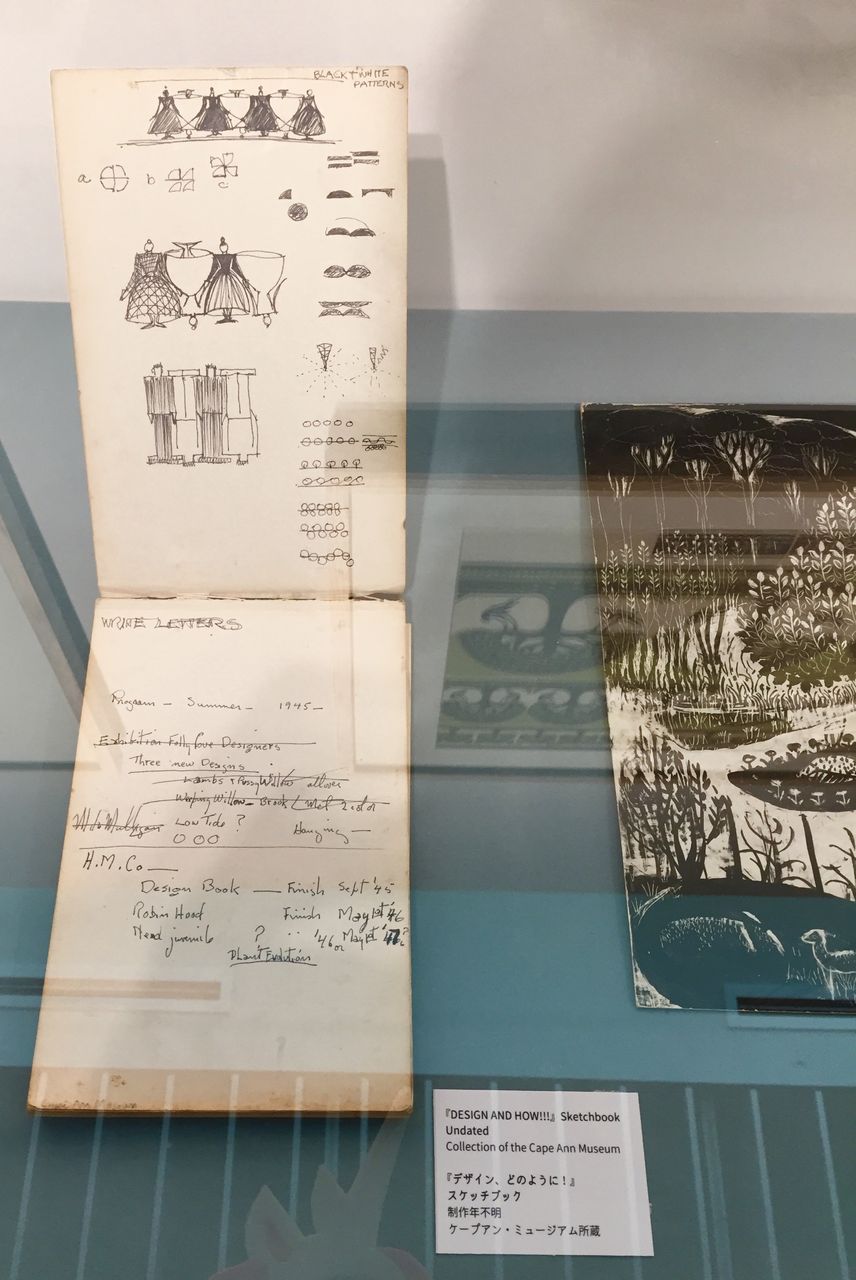 BLACK + WHITE
PATTERNS
a
b
c
WRITE LETTERS
Program – Summer – 1945 –
Exhibition Folly Cove Designers
Three new Designs
Lambs & Pussy Willow allover
Weeping Willow – Brook / 2 color
Low Tide ? Hanging –
H.M.Co –
Design Book — Finish Sept '45
Robin Hood Finish May 1st '46
? '46 or May 1st
Cape Ann Museum
『DESIGN AND HOW!!!』 Sketchbook
Undated
Collection of the Cape Ann Museum
『デザイン、どのように！』
スケッチブック
制作年不明
ケープアン・ミュージアム所蔵